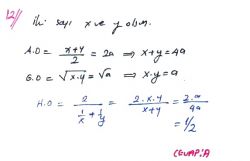 12// İki sayı x ve y olsun.
A.O = x+y/2 = 2a ⟹ x+y = 4a
G.O = √x.y = √a ⟹ x.y = a
H.O = 2/(1/x + 1/y) = 2.x.y/x+y = 2.a/4a
= 1/2
CEVAP: A